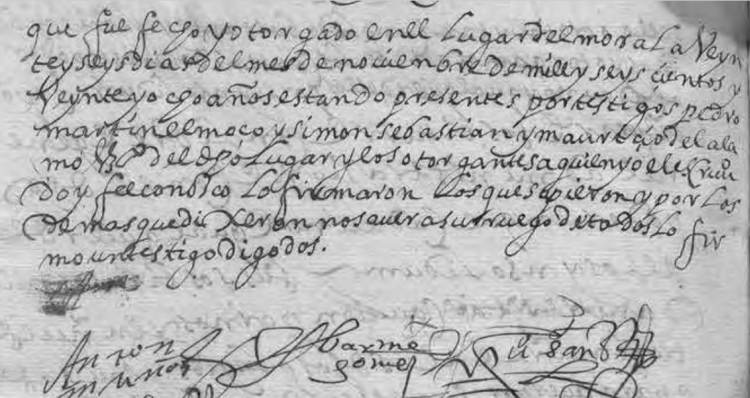 que fue fecho y otorgado en el lugar del moral a Veyn
te y seys dias del mes de noviembre de mill y seys cientos y
Veynte y ocho años estando presentes por testigos pedro
martin el moço y simon sebastian y mauricio del ala
mo Vºs del dho lugar y los otorgantes a quien yo el escriuº
doy fee conosco lo firmaron los que supieron y por los
demas que dixeron no sauer a su rruego de todos lo fir
mo un testigo digo dos.
Anton
munoz
barme
gomez